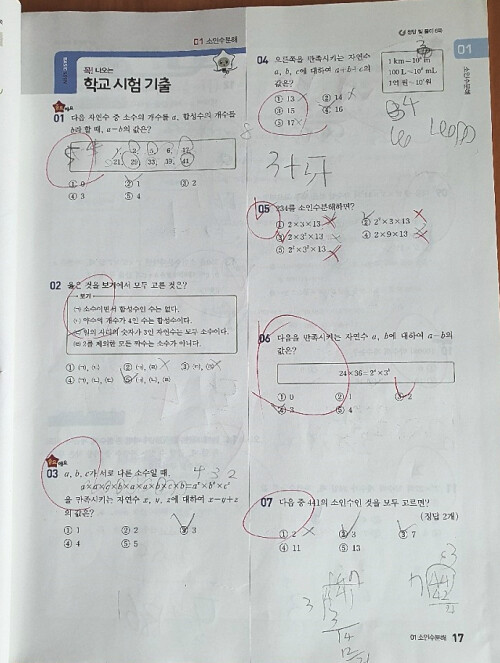 01 소인수분해
꼭! 나오는
학교 시험 기출
01 다음 자연수 중 소수의 개수를 a, 합성수의 개수를
b라 할 때, a-b의 값은?
21, 29, 33, 39, 41
① 0 ② 1 ③ 2
④ 3 ⑤ 4
02 옳은 것을 보기에서 모두 고른 것은?
보기
(ㄱ) 소수이면서 합성수인 수는 없다.
(ㄴ) 약수의 개수가 4인 수는 합성수이다.
일의 자리의 숫자가 3인 자연수는 모두 소수이다.
(ㄹ) 2를 제외한 모든 짝수는 소수가 아니다.
03 a, b, c가 서로 다른 소수일 때,
4 3 2
a×a×c×b×a×a×b×c×b=
을 만족시키는 자연수 x, y, z에 대하여 x-y+z
의 값은?
① 1 ② 2 ③ 3
④ 4 ⑤ 5
정답 및 풀이
01
소인수분해
04 오른쪽을 만족시키는 자연수
a, b, c에 대하여 a+b+c의
값은?
1 km=10ᵃ m
100 L=10ᵇ mL
1억 원=10ᶜ 원
① 13 ② 14
③ 15 ④ 16
⑤ 17
05 234를 소인수분해하면?
① 2×3×13 ② 2²×3×13
③ 2×3²×13 ④ 2×9×13
⑤ 2²×3²×13
06 다음을 만족시키는 자연수 a, b에 대하여 a-b의
값은?
24×36=2ᵃ×3ᵇ
① 0 ② 1 ③ 2
④ 3 ⑤ 4
07 다음 중 441의 소인수인 것을 모두 고르면?
(정답 2개)
① 2 ② 3 ③ 7
④ 11 ⑤ 13
01 소인수분해 17